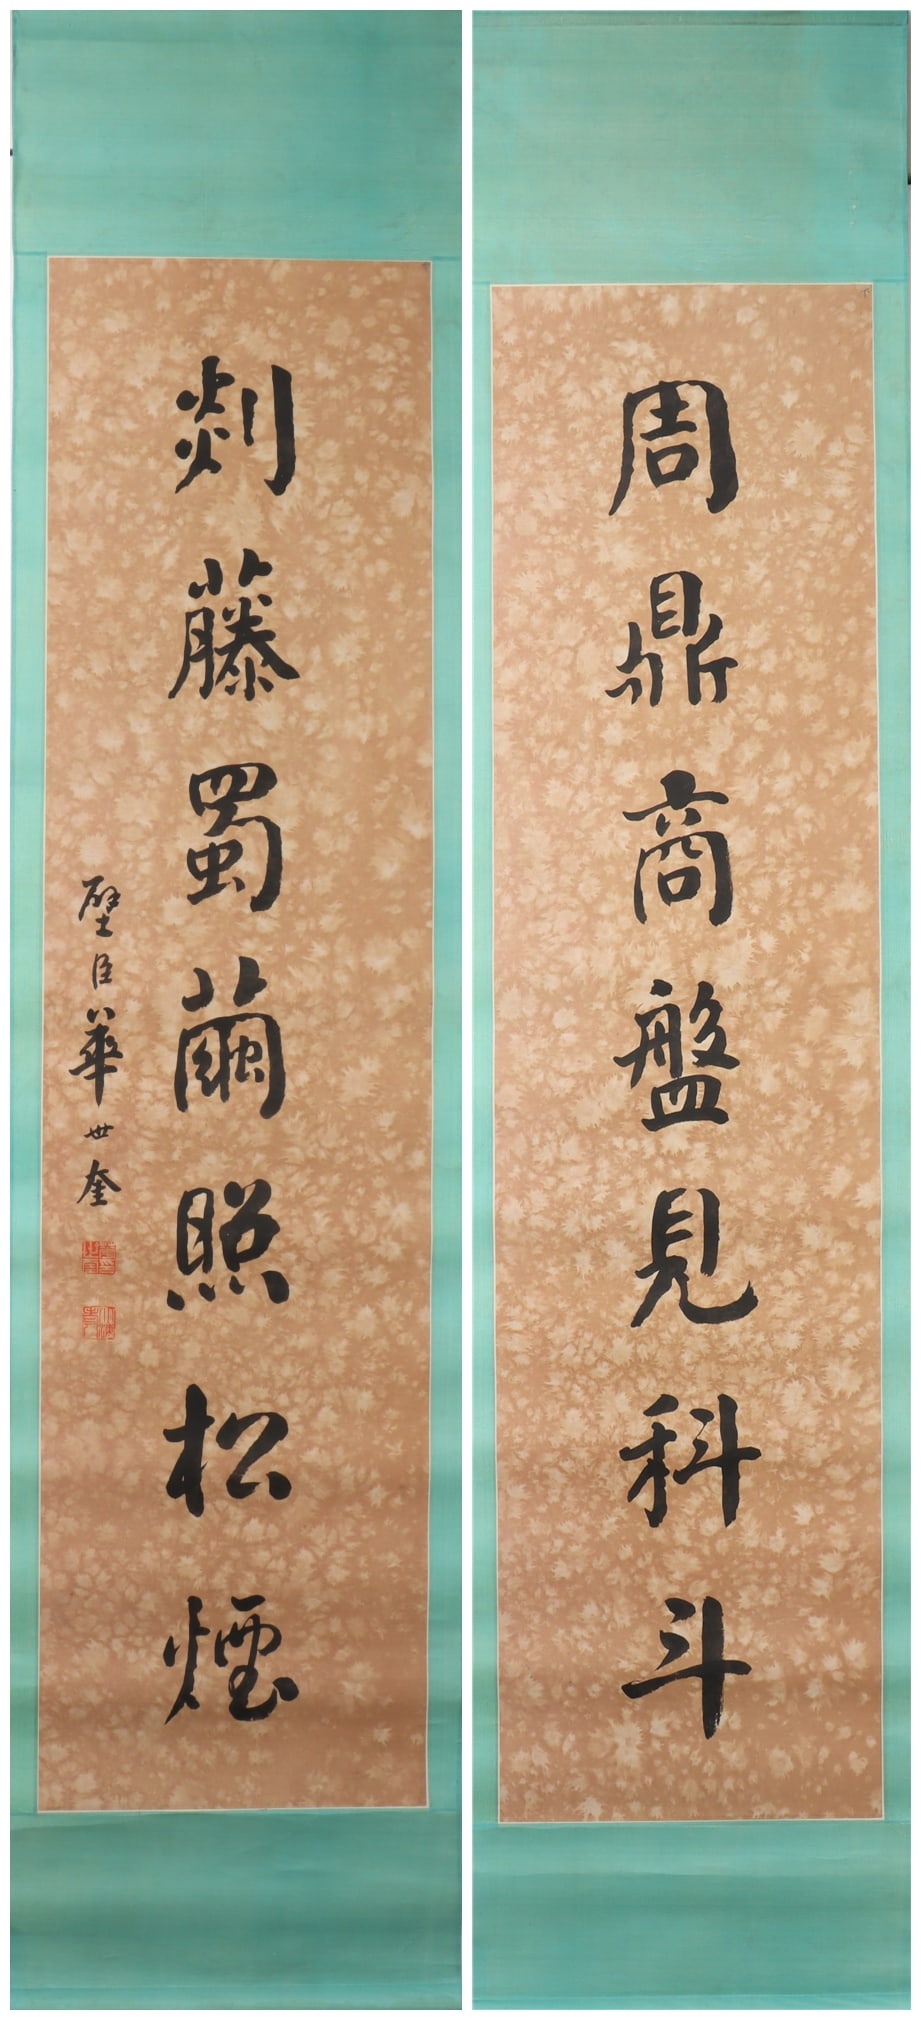 周鼎商盤見科斗
剡藤蜀繭照松煙
壁臣華世奎